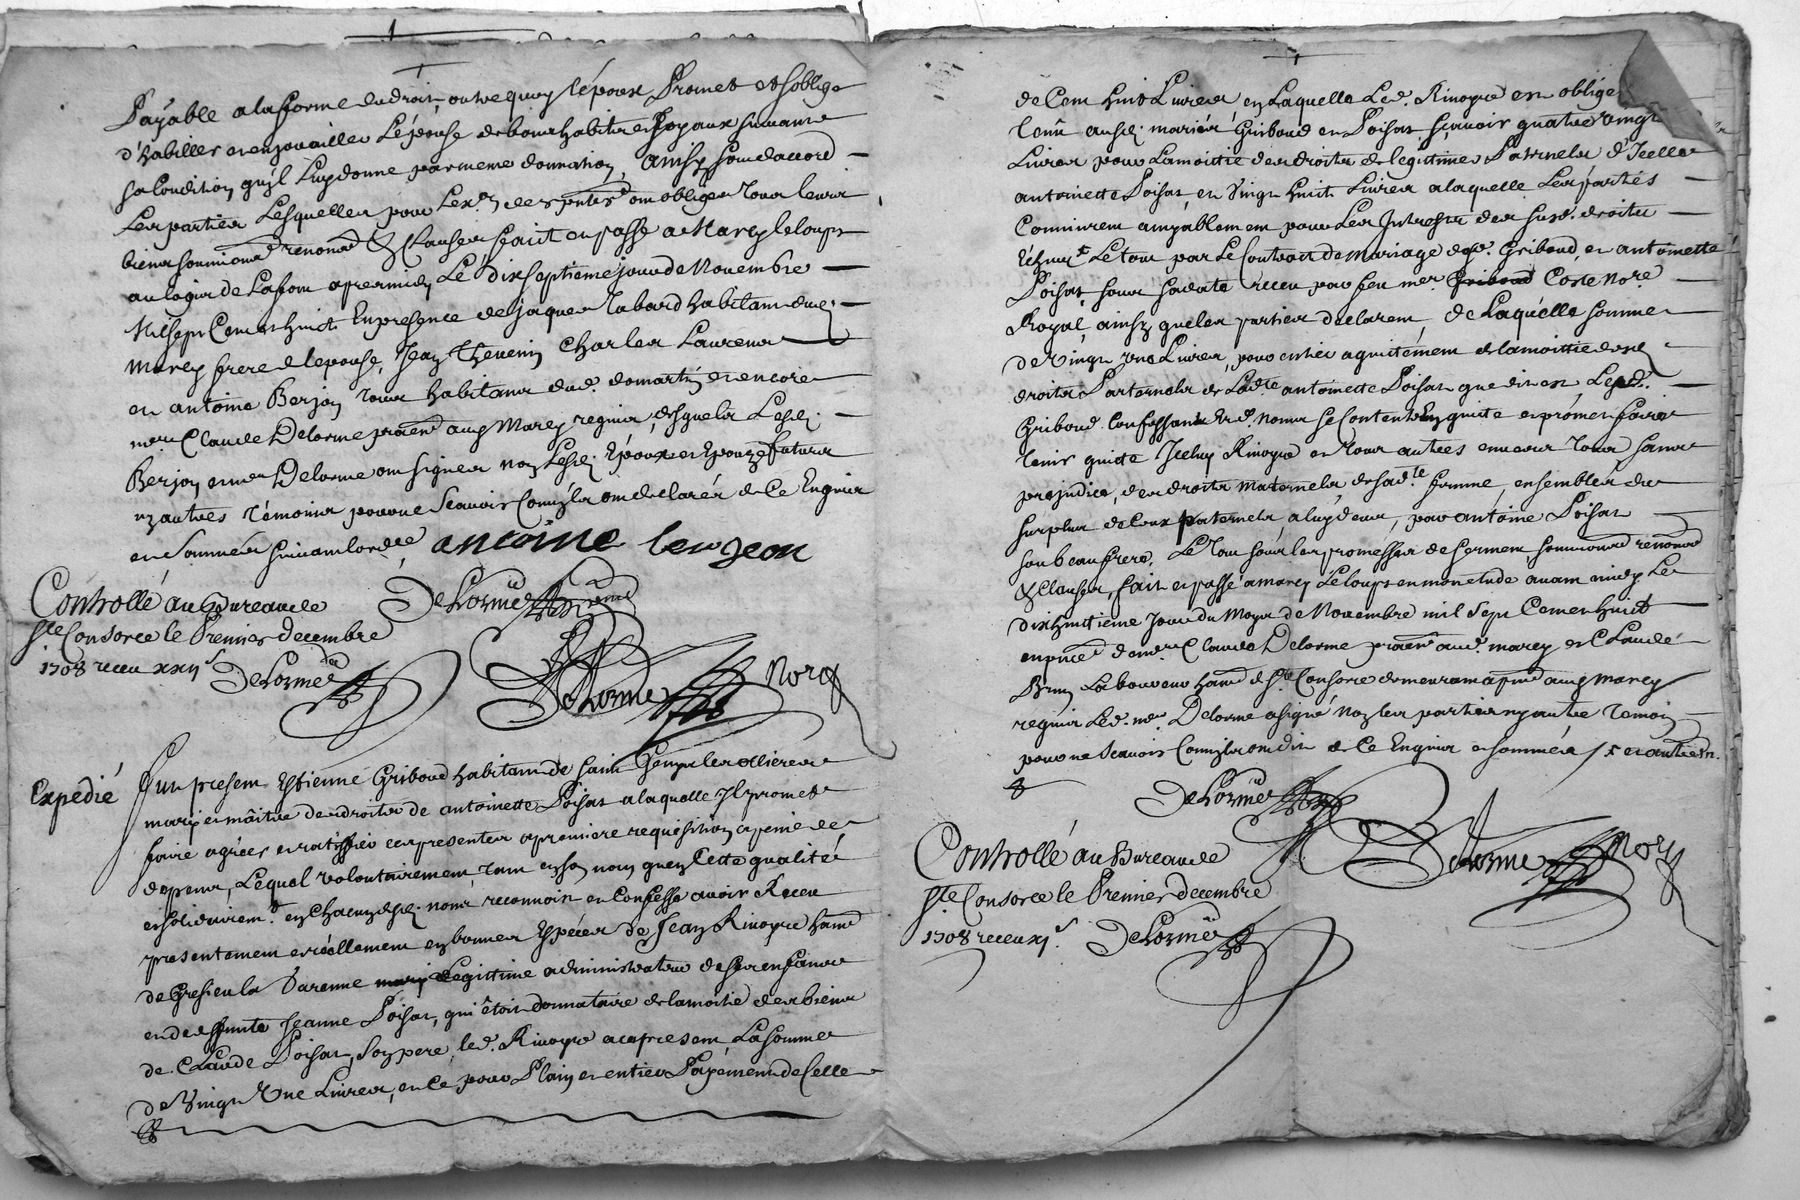 Payable a la forme du droit, outre quoy l'époux Promet et s'oblige
d'habiller et enjouailler l'épouse de bons habits et Joyaux suivant
sa Condition, qu'jl luy donne par meme donnation, ainsy sont d'accord
Les parties Lesquelles pour Lex.on des pntes ont obligés tous leurs
biens soumions renond & Clauses fait et passé a Marcy le loup
au logis de Lafont apremidy Le dixseptieme jour de Novembre
Mil sept Cent et huict En presence de Jaques Tabard habitant dud.
Marcy frere de lepouse, Jean Thevenin Charles Laurens
et antoine Berjon tous habitans dud. domartin et encore
mre Claude Delorme praen aud Marcy requis, desquels Lesd.
Berjon et mre Delorme ont signés non Lesd. Epoux et Epouze futurs
ny autres témoins pour ne Scavoir Comm'jls ont declarés de Ce Enquis
et Sommés suivant lord.ce antoine berjeon
Controllé au Bureau de
Ste Consorce le Premier decembre
1708 receu xxij s
DeLorme
DeLorme
Delorme Nore
Expedié
Fut present Estienne Griboud habitant de saint Genys les ollieres
mary et maître des droits de antoinette Poisat a laquelle Jl promet
faire agréer et ratiffier ces presentes a premiere requisition a peine de
depens, Lequel volontairement, tant en son nom qu'en Cette qualité
et solidairemt en Chacun desd. noms reconnoit et Confesse avoir Receu
presentement et réellement en bonnes Especes de Jean Rivoyre hant
de Gresieu la Varenne legittime administrateur de ses enfans
et de deffunte Jeanne Poisat, qui étoit donnataire de la moitié des biens
de Claude Poisat son pere, led. Rivoyre a ce present, La somme
de Vingt Une Livres, et Ce pour Plain et entier Payement de Celle
de Cent huit Livres en Laquelle Led. Rivoyre est oblige
tenu ausd. mariés Griboud et Poisat sçavoir quatre vingt
Livres pour La moittié des droits de legittimes Paternels d'Jcelle
antoinette Poisat, et Vingt huit Livres a laquelle Les partiés
Convinrent amyablement pour Les Jnterests des susd. droits
Le tout par Le Contract de Mariage desd. Griboud, et antoinette
Poisat, sous sa date receu par feu me Coste Nore
Royal, ainsy que les parties declarent, de Laquelle somme
de Vingt une Livres, pour entier aquitement de la moittié desd.
droits Paternels de Ladte antoinette Poisat que dit est Led.
Griboud Confessant sd. noms se Contente En quitte et promet faire
tenir quitte Jcelluy Rivoyre et tous autres envers tous sans
prejudice, des droits Maternels de sad.te femme, ensembles du
surplus de Ceux paternels a luy deus, par antoine Poisat
son beaufrere, Le Tout sous les promesses de serment, soumions renond
& Clauses, fait et passé a marcy Le loup en mon etude avant midy Le
dixhuitieme Jour du Moys de Novembre mil Sept Cent et huict
en pnce de me Claude Delorme praen aud. marcy et Claude
Brun Laboureur hant de Ste Consorce
requis Led. me Delorme a signé Non les parties ny autre temoin
pour ne Scavoir Comm'jls ont dit de Ce Enquis et sommés
DeLorme
Delorme Nore
Controllé au Bureau de
Ste Consorce le Premier decembre
1708 receu xj s. DeLorme